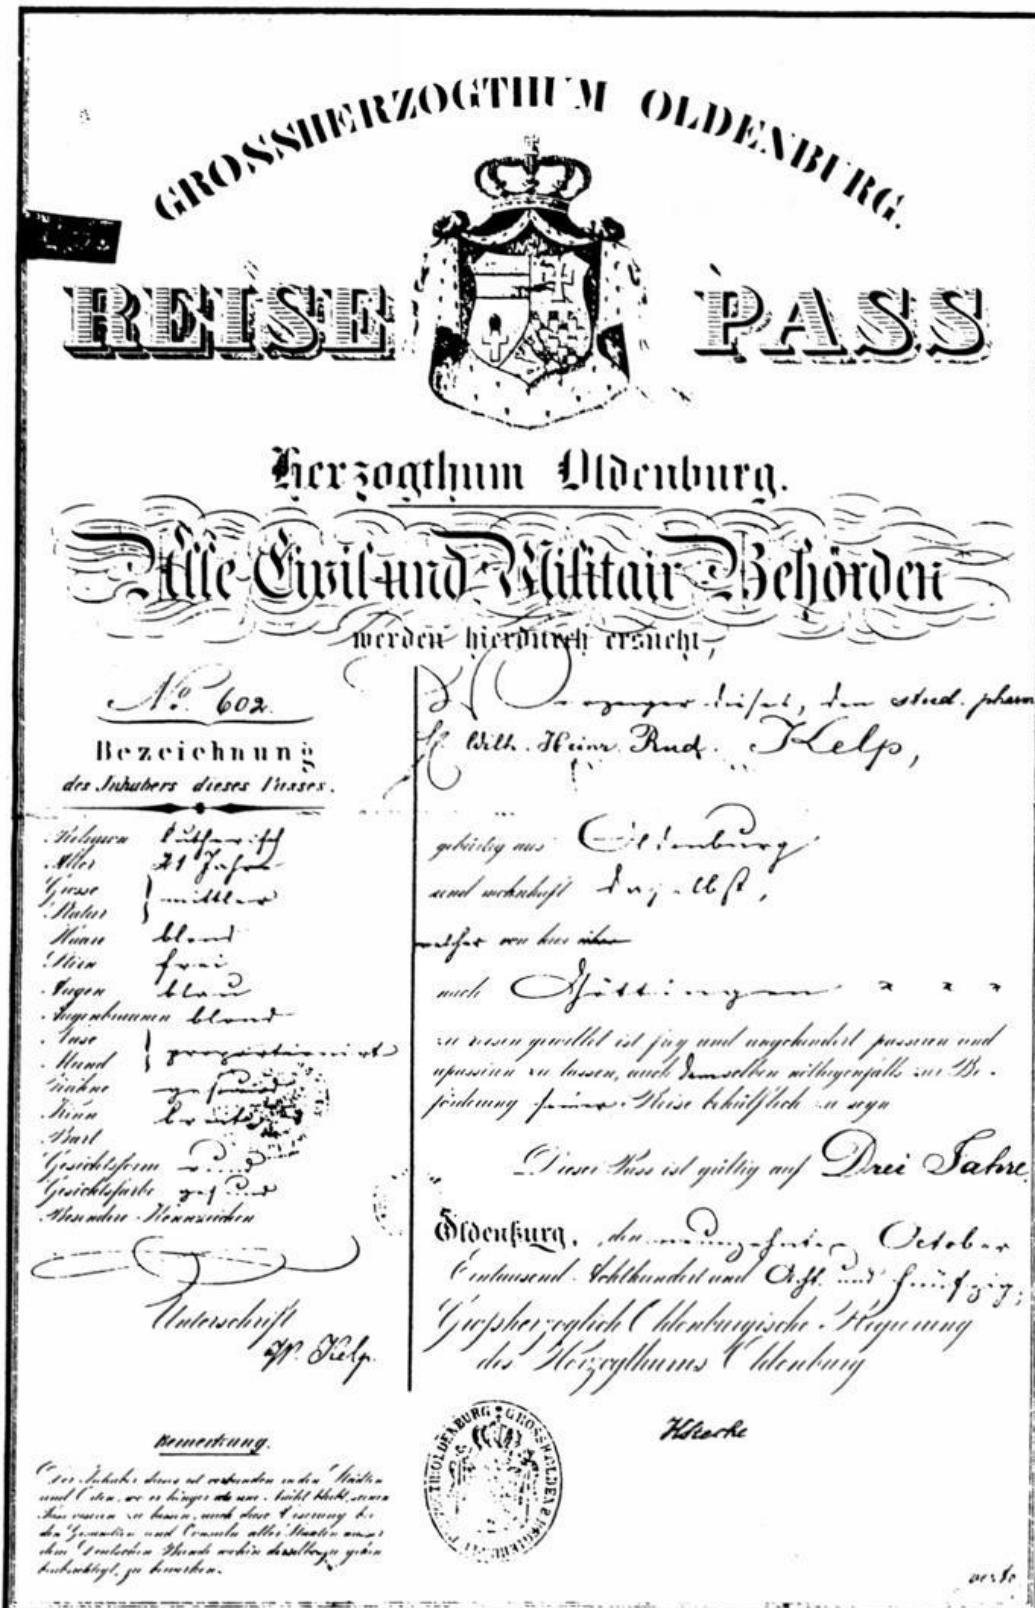 GROSSHERZOGTHUM OLDENBURG.
REISE PASS
Herzogthum Oldenburg.
Alle Civil und Militair Behörden
werden hierdurch ersucht,
No. 602.
Bezeichnung
des Inhabers dieses Passes.
Religion lutherisch
Alter 21 Jahre
Grösse
Statur } mittler
Haare blond
Stirn frei
Augen blau
Augenbraunen blond
Nase
Mund } proportionirt
Zähne gesund
Kinn breit
Bart
Gesichtsform rund
Gesichtsfarbe gesund
Besondere Kennzeichen
Unterschrift
W. Kelp.
Bemerkung.
Der Inhaber dieses ist verbunden in den Städten
und Orten, wo er länger als eine Nacht bleibt, seinen
Pass visiren zu lassen, auch diese Visirung bei
den Gesandten und Consuln aller Staaten ausser
dem Deutschen Bunde wohin derselbe zu gehen
beabsichtigt, zu bewirken.
Vorzeiger dieses, den stud. pharm
Wilh. Heinr. Rud. Kelp,
gebürtig aus Oldenburg
und wohnhaft daselbst,
welcher von hier über
nach Göttingen
zu reisen gewillet ist frey und ungehindert passiren und
repassiren zu lassen, auch demselben nöthigenfalls zur Be-
förderung seiner Reise behülflich zu seyn
Dieser Pass ist gültig auf Drei Jahre.
Oldenburg, den neunzehnten October
Eintausend Achthundert und Acht und fünfzig,
Grossherzoglich Oldenburgische Regierung
des Herzogthums Oldenburg